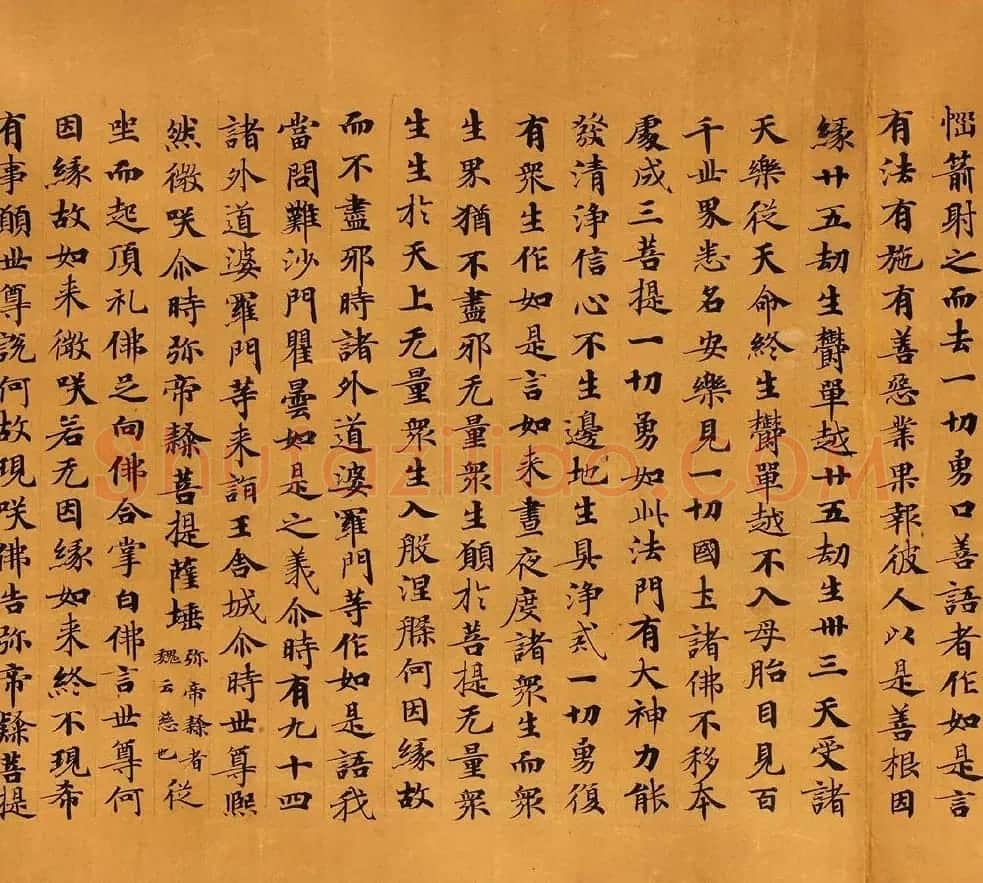 惱箭射之而去一切勇口善語者作如是言
有法有施有善惡業果報彼人以是善根因
緣廿五劫生欝單越廿五劫生卅三天受諸
天樂從天命終生欝單越不入母胎目見百
千世界悉名安樂見一切國土諸佛不移本
處成三菩提一切勇如此法門有大神力能
發清淨信心不生邊地生具淨戒一切勇復
有眾生作如是言如来晝夜度諸眾生而眾
生界猶不盡邪无量眾生願於菩提无量眾
生生於天上无量眾生入般涅槃何因緣故
而不盡邪時諸外道婆羅門等作如是語我
當問難沙門瞿曇如是之義尒時有九十四
諸外道婆羅門等来詣王舍城尒時世尊熙
然微咲尒時弥帝隸菩提薩埵弥帝隸者魏云慈也從
坐而起頂礼佛足向佛合掌白佛言世尊何
因緣故如来微咲若无因緣如来終不現希
有事願世尊說何故現咲佛告弥帝隸菩提
Shufaziliao.com